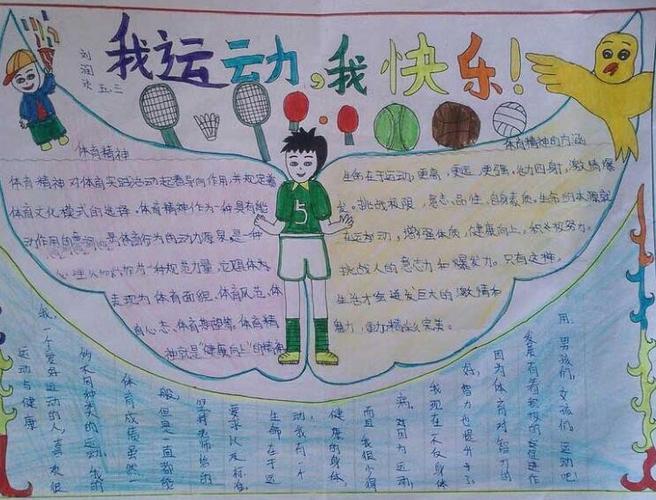 我运动,我快乐!
刘润
五.三
体育精神
体育精神对体育实践活动起着导向作用,并规定着
体育文化模式的选择。体育精神作为一种具有能
动作用的意识,是体育行为的动力源泉,是一种
心理 作为一种规范力量,它具体
表现为体育面貌,体育风范,体
育心态,体育期望等。体育精
神就是"健康向上"的精神
体育精神的内涵
生命在于运动,更高,更远,更强,活力四射,激情爆
发。挑战极限,意志、品性、自身素质,生命的本源就
在运动,增强体质,健康向上,积极努力。
挑战人的意志力和爆发力。只有这样,
生活才会迸发巨大的激情和
魅力,更精彩完美。
5
运动与健康
我,一个爱好运动的人,喜欢很
多不同种类的运动。我的
体育成绩虽然一
般,但是一直都能
坚持老师给的
要求以及标准。
生命在于运
动,我有一个
健康的身体,
而且我很少得
病。就因为运动,
我现在不仅身体
好,智力也提升了。
因为体育对智力的
发展有着积极的促进作
用。男孩们,女孩们,运动吧!